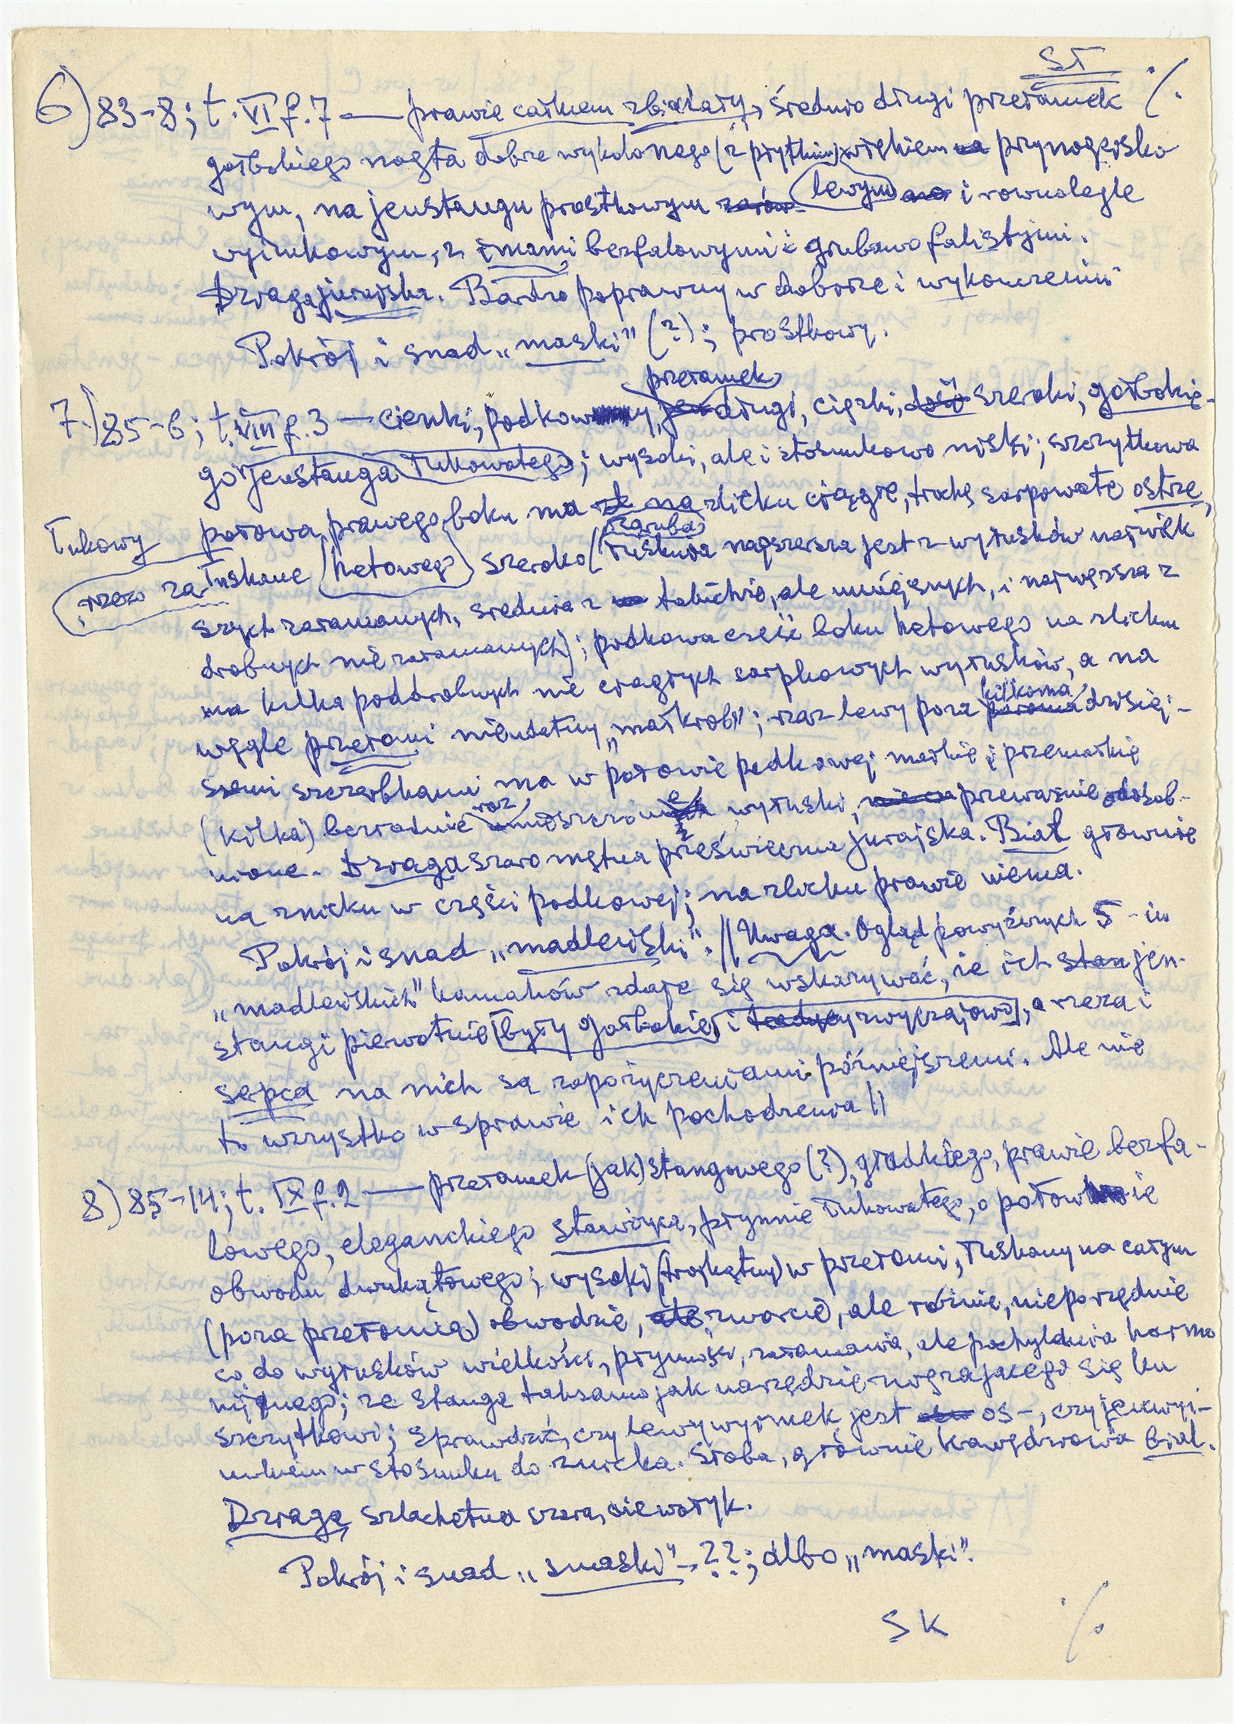 ST
6) 83-8; t. VI f. 7 — prawie całkiem zbielały, średnio długi przełamek %
gołbskiego nogła dobrze wykolonego (z płytkim) więkiem przynogłosko
wym, na jenstangu prostkowym lewym i równolegle
wyimkowym, z imami bezfalowymi i grubawo falistymi.
Dzraga jurajska. Bardzo poprawny w doborze i wykończeniu
Pokrój i snad „maski" (?); prostkowy.
przełamek
7.) 85-6; t. VIII f. 3 — cienki, podkowy, długi, ciężki, szeroki, gołbskie-
go jenstanga łukowatego; wysoki, ale i stosunkowo niski; szczytkowa
połowa prawego boku ma na zlicku ciągłe, trochę sarpowate ostrze,
Łukowy
rzezo załuskane (ketowego) szeroko (zaruba) łuskwia najszersza jest z wyłusków najwięk
szych załamanych, średnia z takichże, ale mniejszych, i najwęższa z
drobnych nie załamanych); podkowa część boku ketowego na zlicku
ma kilka poddrobnych nie ciągłych sarpkowych wyłusków, a na
węgle przełami nieudatny „małkrob"; zaz lewy poza kilkoma dzisiej-
szemi szczerbkami ma w połowie podkowej małkie i przemałkie
(kilka) bezradnie raz wyłuski, przeważnie odosob-
nione. Dzraga szaro mętna przeświecna jurajska. Biał głównie
na znicku w części podkowej; na zlicku prawie niema.
Pokrój i snad „madleński". // Uwaga. Ogląd powyższych 5-iu
„madleńskich" kamaków zdaje się wskazywać, że ich jen-
stangi pierwotnie [były gołbskie i zwyczajowe], a rzeza i
sepca na nich są zapożyczeniami późniejszemi. Ale nie
to wszystko w sprawie ich pochodzenia //
8) 85-14; t. IX f. 2 — przełamek (jak) stangowego (?), gładkiego, prawie bezfa-
lowego, eleganckiego stawizca, płynnie łukowatego, o połowie
obwodu dwukątowego; wysoki (trójkątny) w przełami, łuskany na całym
(poza przełomię) obwodzie, zwarcie, ale różnie, nieporządnie
co do wyłusków wielkości, płynności, załamania, ale pochyldnia harmo
nijnego; ze stanga taksamo jak narzędzie nogzajacego się ku
szczytkowi; sprawdzić, czy lewy wyimek jest os-, czy jenwyi-
mkiem w stosunku do znicka. Słoba, głównie krawędziowa biel.
Dzraga szlachetna szara, niewatyk.
Pokrój i snad „smaski" – ??; albo „maski".
SK %